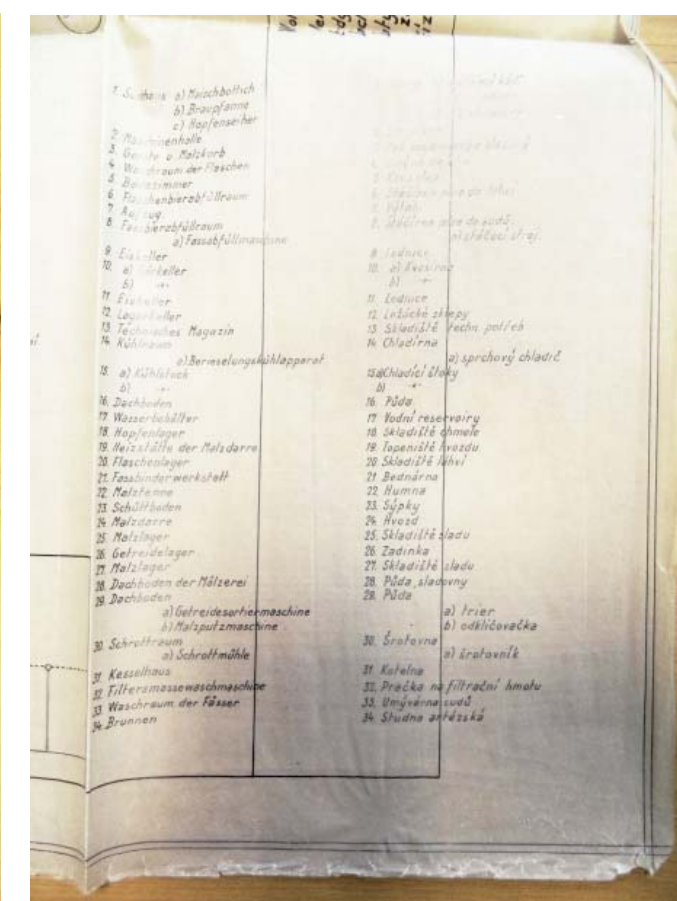 1. Sudhaus a) Maischbottich
b) Braupfanne
c) Hopfenseiher
2. Maschinenhalle
3. Gerste u. Malzkorb
4. Waschraum der Flaschen
5. Badezimmer
6. Flaschenbierabfüllraum
7. Aufzug
8. Fassbierabfüllraum
a) Fassabfüllmaschine
9. Eiskeller
10. a) Gärkeller
b) -"-
11. Eiskeller
12. Lagerkeller
13. Technisches Magazin
14. Kühlraum
a) Berieselungskühlapparat
15. a) Kühlstock
b) -"-
16. Dachboden
17. Wasserbehälter
18. Hopfenlager
19. Heizstätte der Malzdarre
20. Flaschenlager
21. Fassbinderwerkstatt
22. Malztenne
23. Schüttboden
24. Malzdarre
25. Malzlager
26. Getreidelager
27. Malzlager
28. Dachboden der Mälzerei
29. Dachboden
a) Getreidesortiermaschine
b) Malzputzmaschine
30. Schrottraum
a) Schrottmühle
31. Kesselhaus
32. Filtersmassewaschmaschine
33. Waschraum der Fässer
34. Brunnen
6. Stáčírna piva do lahví
7. Výtah
8. Stáčírna piva do sudů
a) stáčecí stroj.
9. Lednice
10. a) Kvasírna
b) -"-
11. Lednice
12. Ležácké sklepy
13. Skladiště techn. potřeb
14. Chladírna
a) sprchový chladič
15. a) Chladící štoky
b) -"-
16. Půda
17. Vodní reservoiry
18. Skladiště chmele
19. Topeniště hvozdu
20. Skladiště láhví
21. Bednárna
22. Humna
23. Sýpky
24. Hvozd
25. Skladiště sladu
26. Zadinka
27. Skladiště sladu
28. Půda sladovny
29. Půda
a) trier
b) odkličovačka
30. Šrotovna
a) šrotovník
31. Kotelna
32. Pračka na filtrační hmotu
33. Umývárna sudů
34. Studna artézská